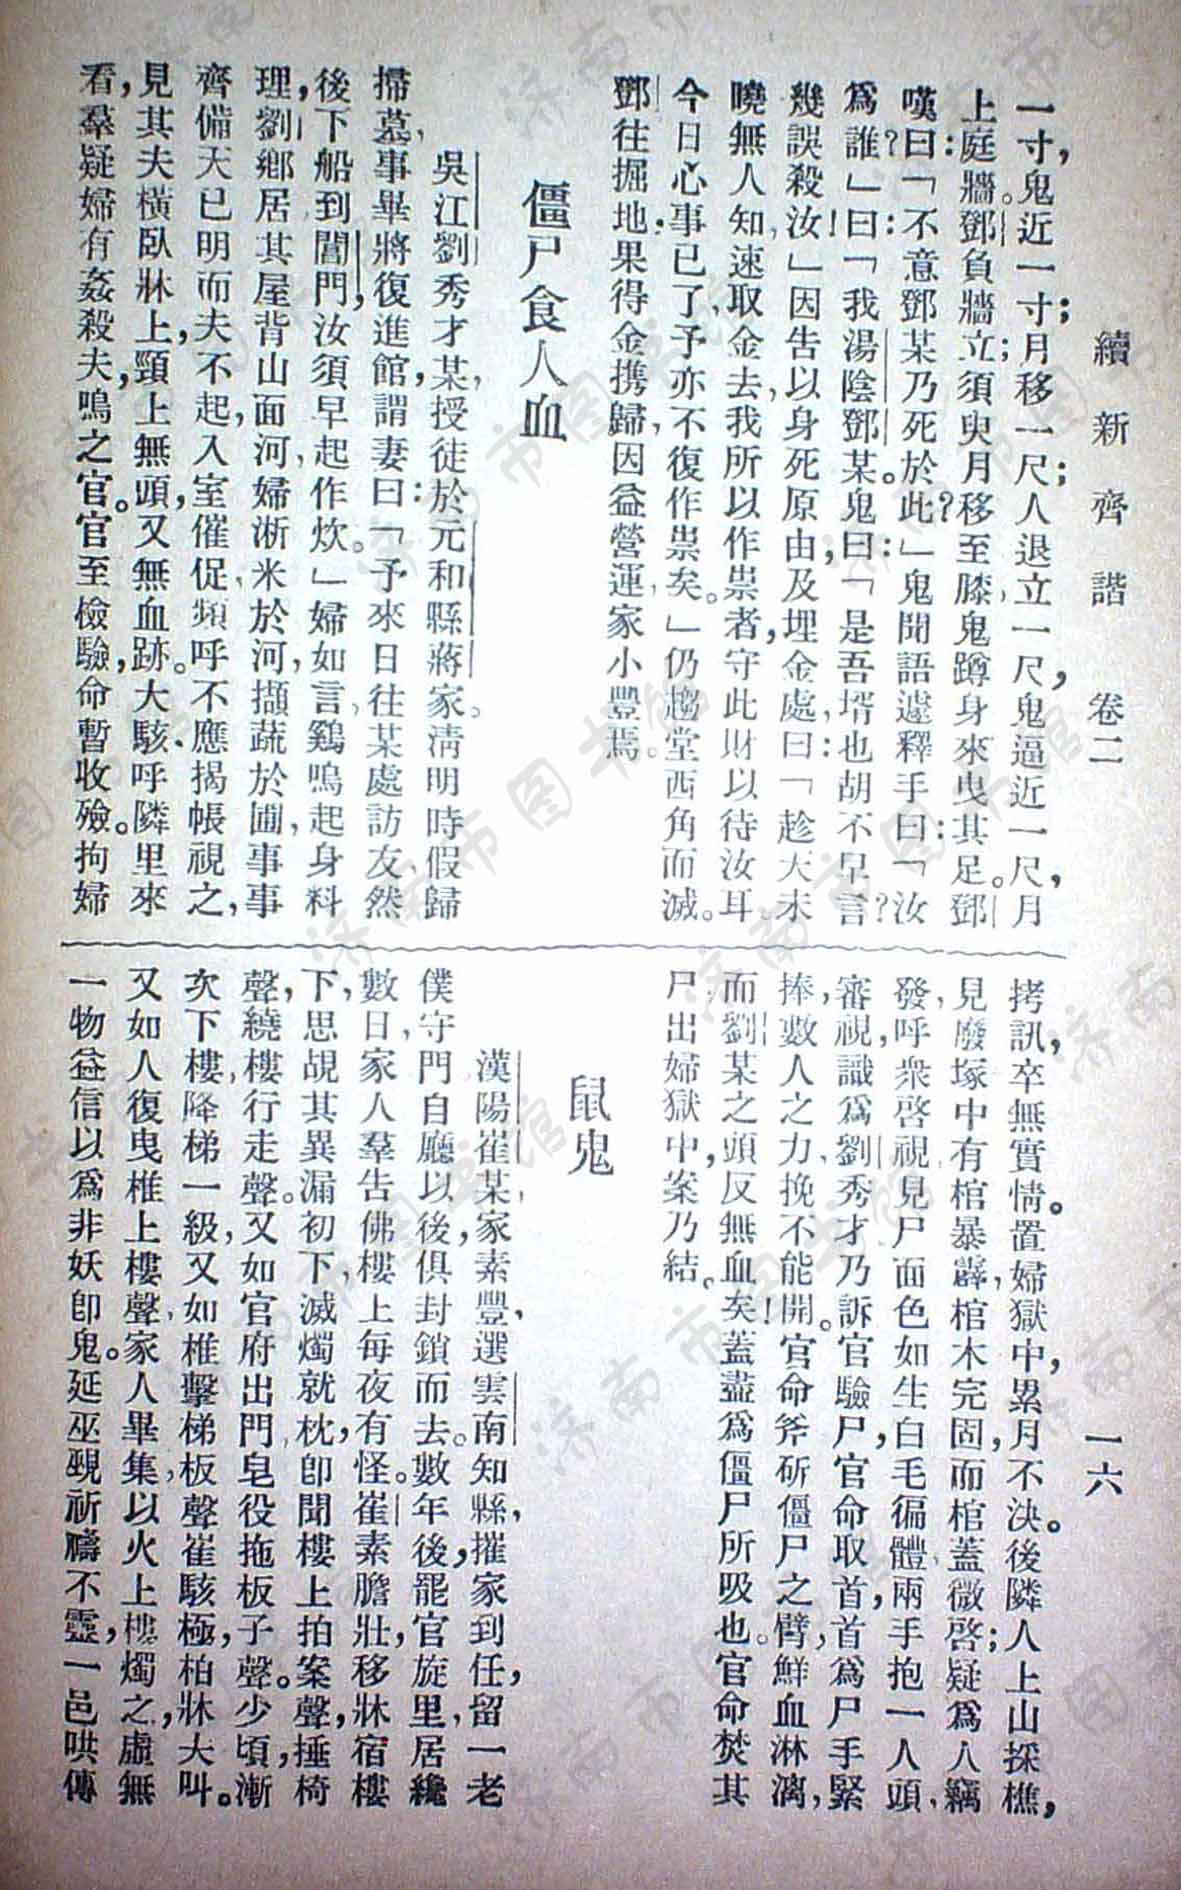 續新齊諧　卷二　一六
一寸，鬼近一寸；月移一尺；人退立一尺，鬼逼近一尺，月
上庭牆。鄧負牆立；須臾月移至膝，鬼蹲身來曳其足。鄧
嘆曰：「不意鄧某乃死於此？」鬼聞語，遽釋手曰：「汝
爲誰？」曰：「我湯陰鄧某。」鬼曰：「是吾壻也，胡不早言？
幾誤殺汝！」因告以身死原由，及埋金處，曰：「趁天未
曉無人知，速取金去，我所以作祟者，守此財以待汝耳。
今日心事已了，予亦不復作祟矣。」仍趨堂西角而滅。
鄧往掘地，果得金攜歸，因益營運，家小豐焉。
僵尸食人血
吳江劉秀才某，授徒於元和縣蔣家。清明時假歸
掃墓，事畢將復進館，謂妻曰：「予來日往某處訪友，然
後下船到閶門，汝須早起作炊。」婦如言，鷄鳴起身料
理，劉鄉居其屋背山面河，婦淅米於河，擷蔬於圃，事事
齊備，天已明而夫不起，入室催促，頻呼不應，揭帳視之，
見其夫橫臥牀上，頸上無頭，又無血跡。大駭，呼隣里來
看，羣疑婦有姦殺夫，鳴之官。官至檢驗，命暫收殮。拘婦
拷訊，卒無實情。置婦獄中，累月不決。後隣人上山採樵，
見廢塚中有棺暴露，棺木完固，而棺蓋微啓；疑爲人竊
發，呼衆啓視，見尸面色如生，白毛徧體，兩手抱一人頭，
審視，識爲劉秀才，乃訴官驗尸，官命取首，首爲尸手緊
捧，數人之力，挽不能開。官命斧斫僵尸之臂，鮮血淋漓，
而劉某之頭反無血矣！蓋盡爲僵尸所吸也。官命焚其
尸，出婦獄中，案乃結。
鼠鬼
漢陽崔某，家素豐，選雲南知縣，摧家到任，留一老
僕守門，自廳以後，俱封鎖而去。數年後，罷官旋里，居纔
數日，家人羣告佛樓上每夜有怪。崔素膽壯，移牀宿樓
下，思覘其異，漏初下，滅燭就枕，卽聞樓上拍案聲，捶椅
聲，繞樓行走聲。又如官府出門，皂役拖板子聲。少頃，漸
次下樓，降梯一級，又如椎擊梯板聲。崔駭極，柏牀大叫。
又如人復曳椎上樓聲，家人畢集，以火上樓燭之，虛無
一物，益信以爲非妖卽鬼。延巫覡祈禱不靈，一邑哄傳